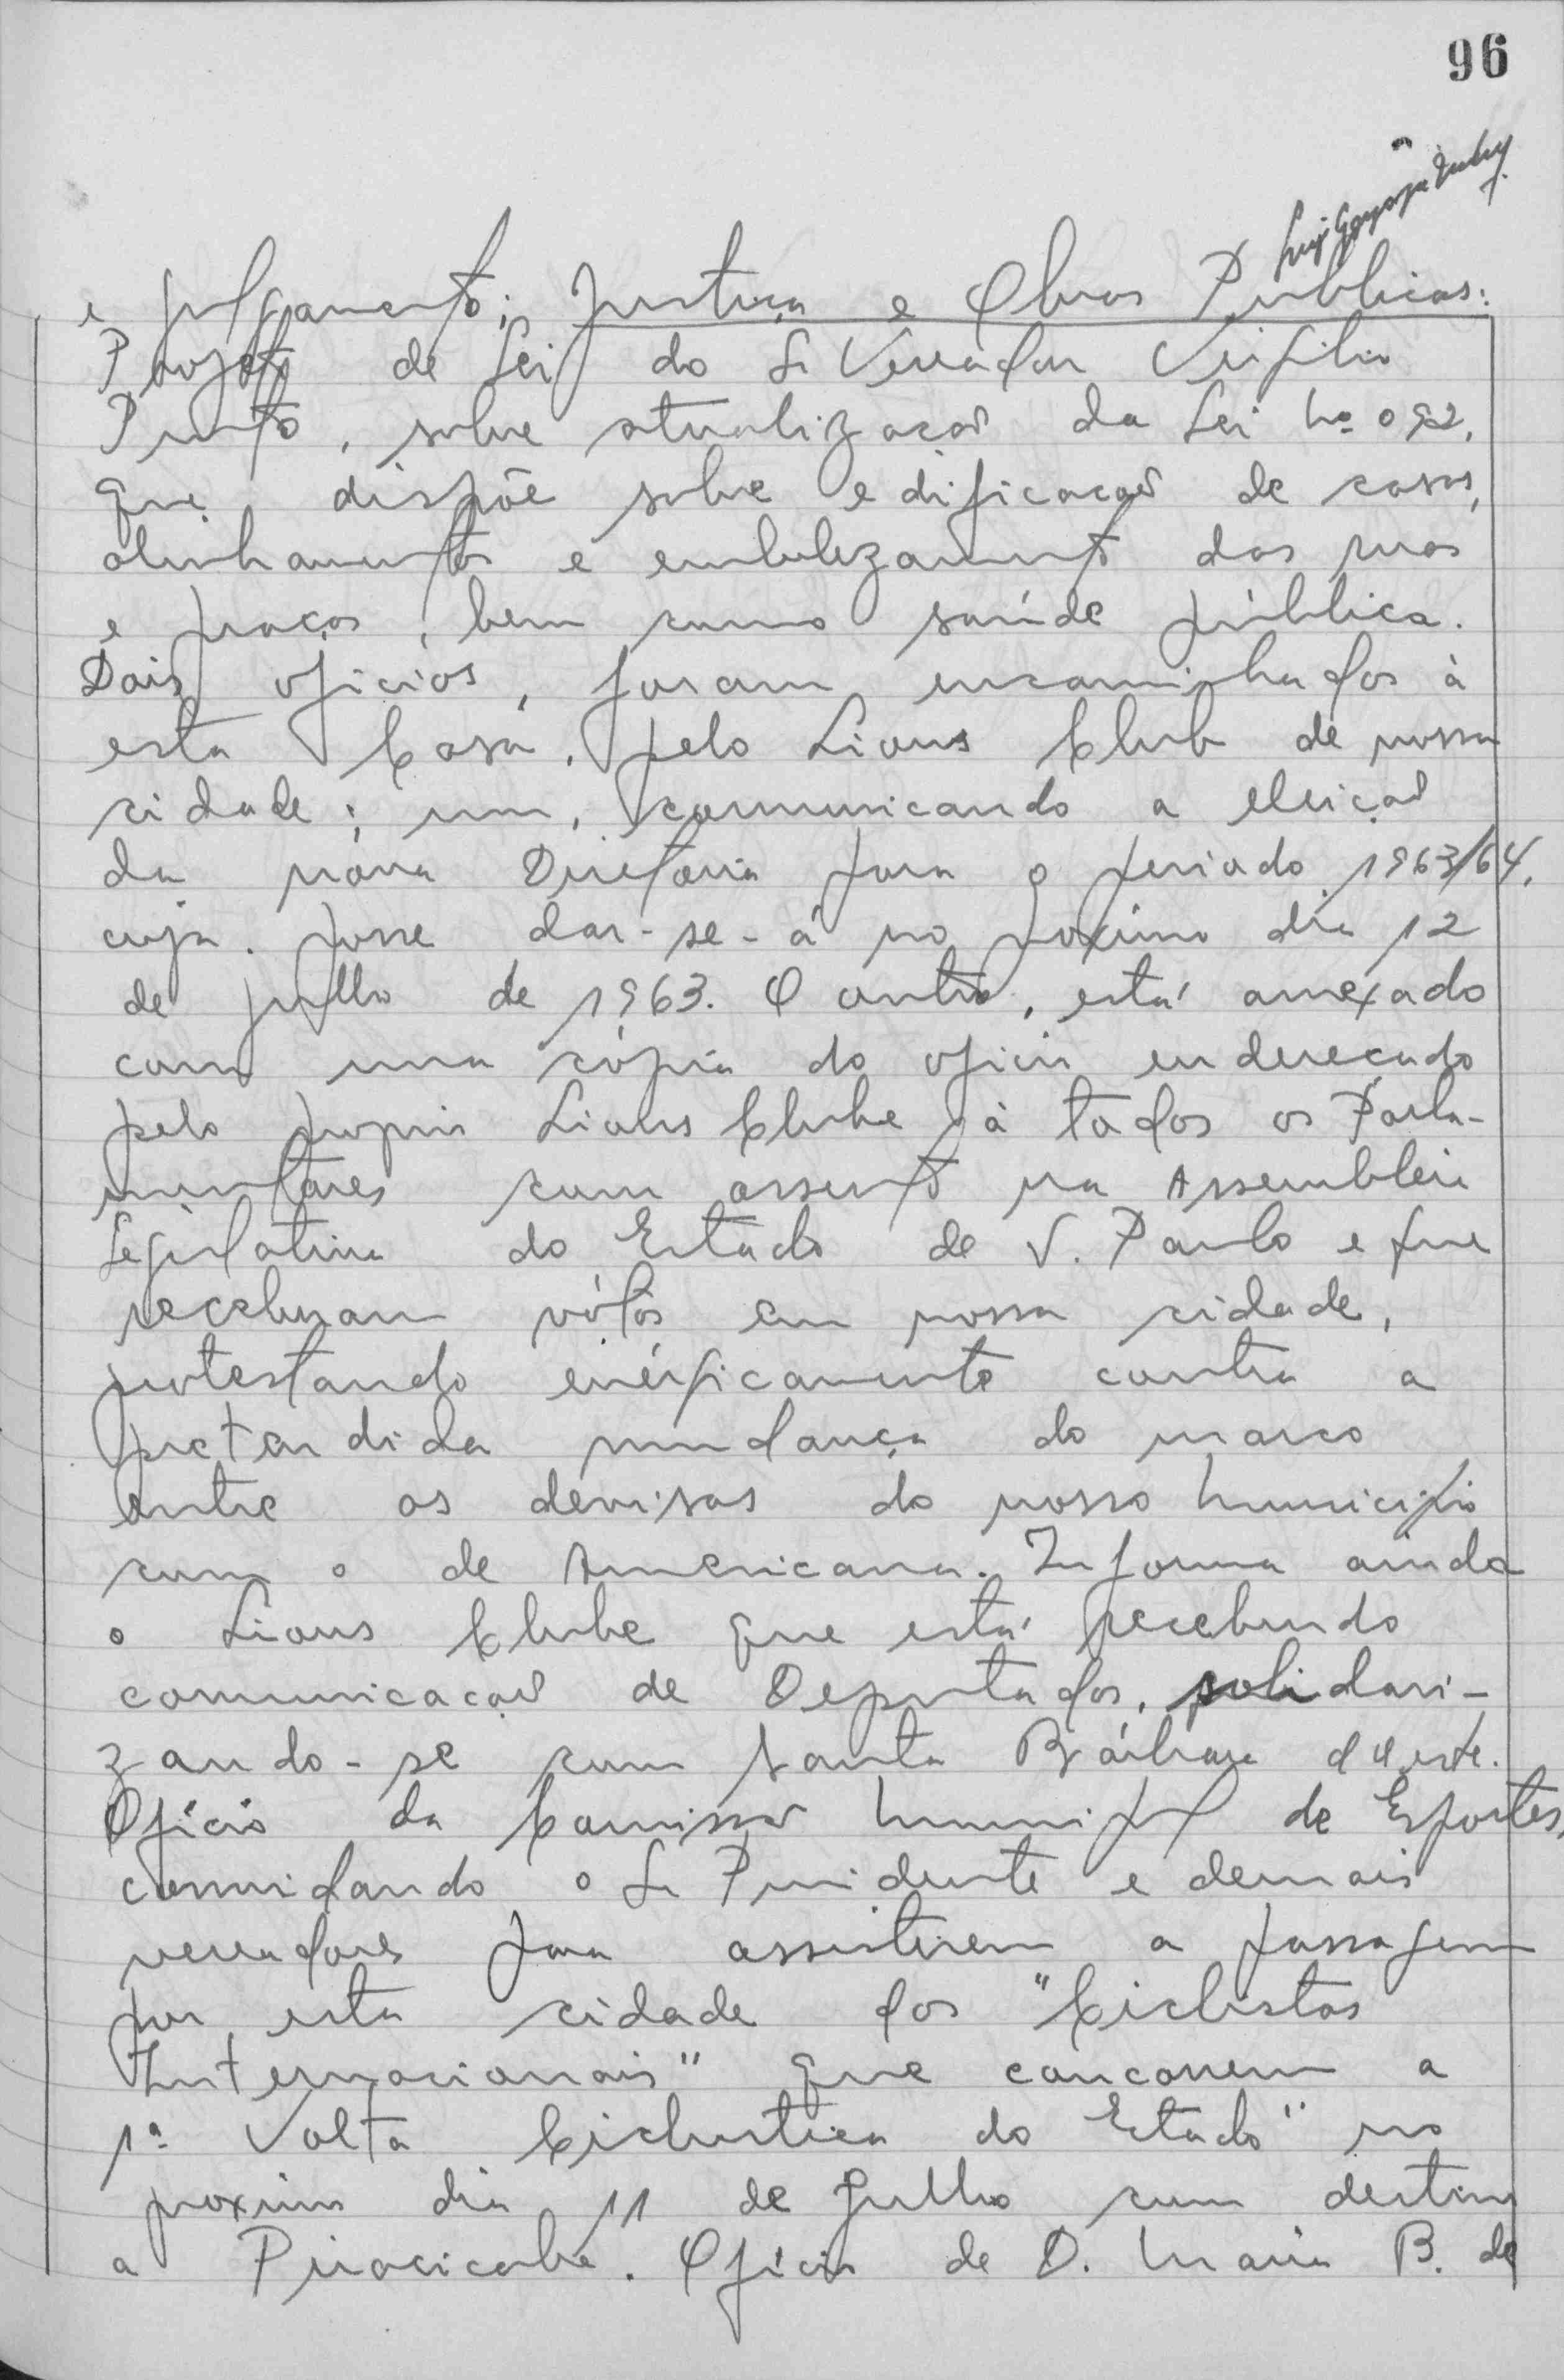 96
e julgamento; Justiça e Obras Publicas:
Projeto de Lei do Sr Vereador Virgilio
Pinto, sobre atualização da Lei nº 092,
que dispõe sobre edificação de casas,
alinhamentos e embelezamento das ruas
e praças, bem como saúde pública.
Dois oficios, foram encaminhados à
esta Casa, pelo Lions Club de nossa
cidade; um, comunicando a eleição
da nova Diretoria para o periodo 1963/64,
cuja posse dar-se-á no proximo dia 12
de julho de 1963. O outro, está anexado
com uma cópia do oficio endereçado
pelo proprio Lions Clube à todos os Parla-
mentares com assento na Assembleia
Legislativa do Estado de S. Paulo e que
receberam vótos em nossa cidade,
protestando enérgicamente contra a
pretendida mudança do marco
entre as devisas do nosso municipio
com o de Americana. Informa ainda
o Lions Clube que está recebendo
comunicação de Deputados, solidari-
zando-se com Santa Bárbara d'Oeste.
Oficio da Comissão Municipal de Esportes,
convidando o Sr Presidente e demais
vereadores para assistirem a passagem
por esta cidade dos "Ciclistas
Internacionais" que concorrem a
1ª Volta Ciclistica do Estado" no
proximo dia 11 de julho com destino
a Piracicaba. Oficio de D. Maria B. de